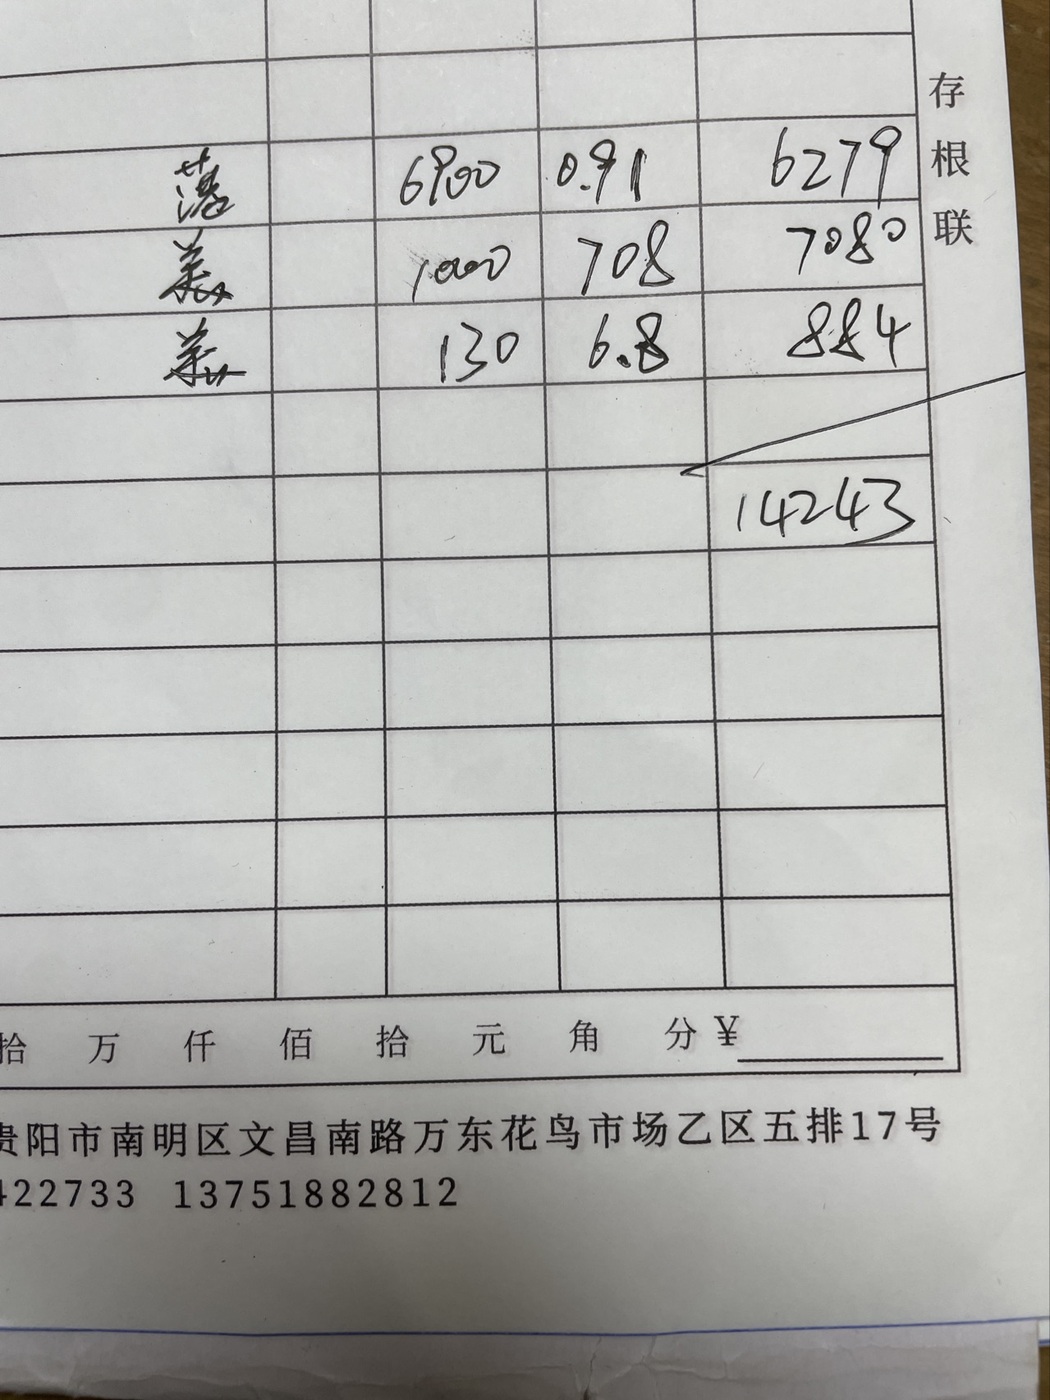 存根联
6900 0.91 6279
1000 708 7080
130 6.8 884
14243
拾 万 仟 佰 拾 元 角 分 ¥
贵阳市南明区文昌南路万东花鸟市场乙区五排17号
422733 13751882812